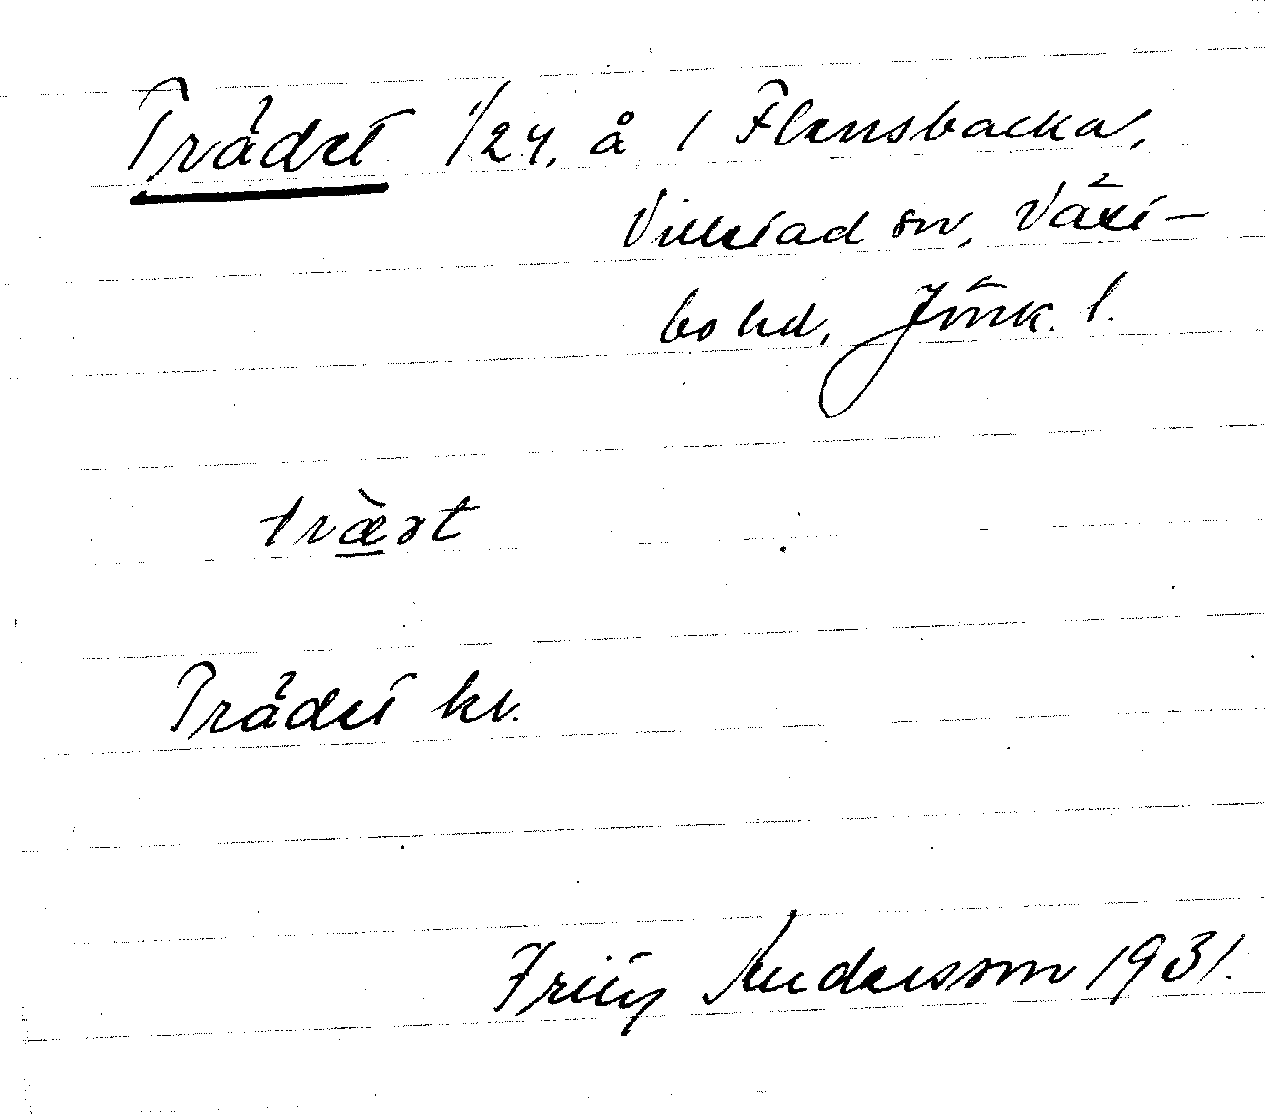 Trådet 1/24, å 1 Flensbacka,
Villstad sn, Väst-
bo hd, Jönk. l.
træ̀ət
Trådet kt.
Fritz Andersson 1931.